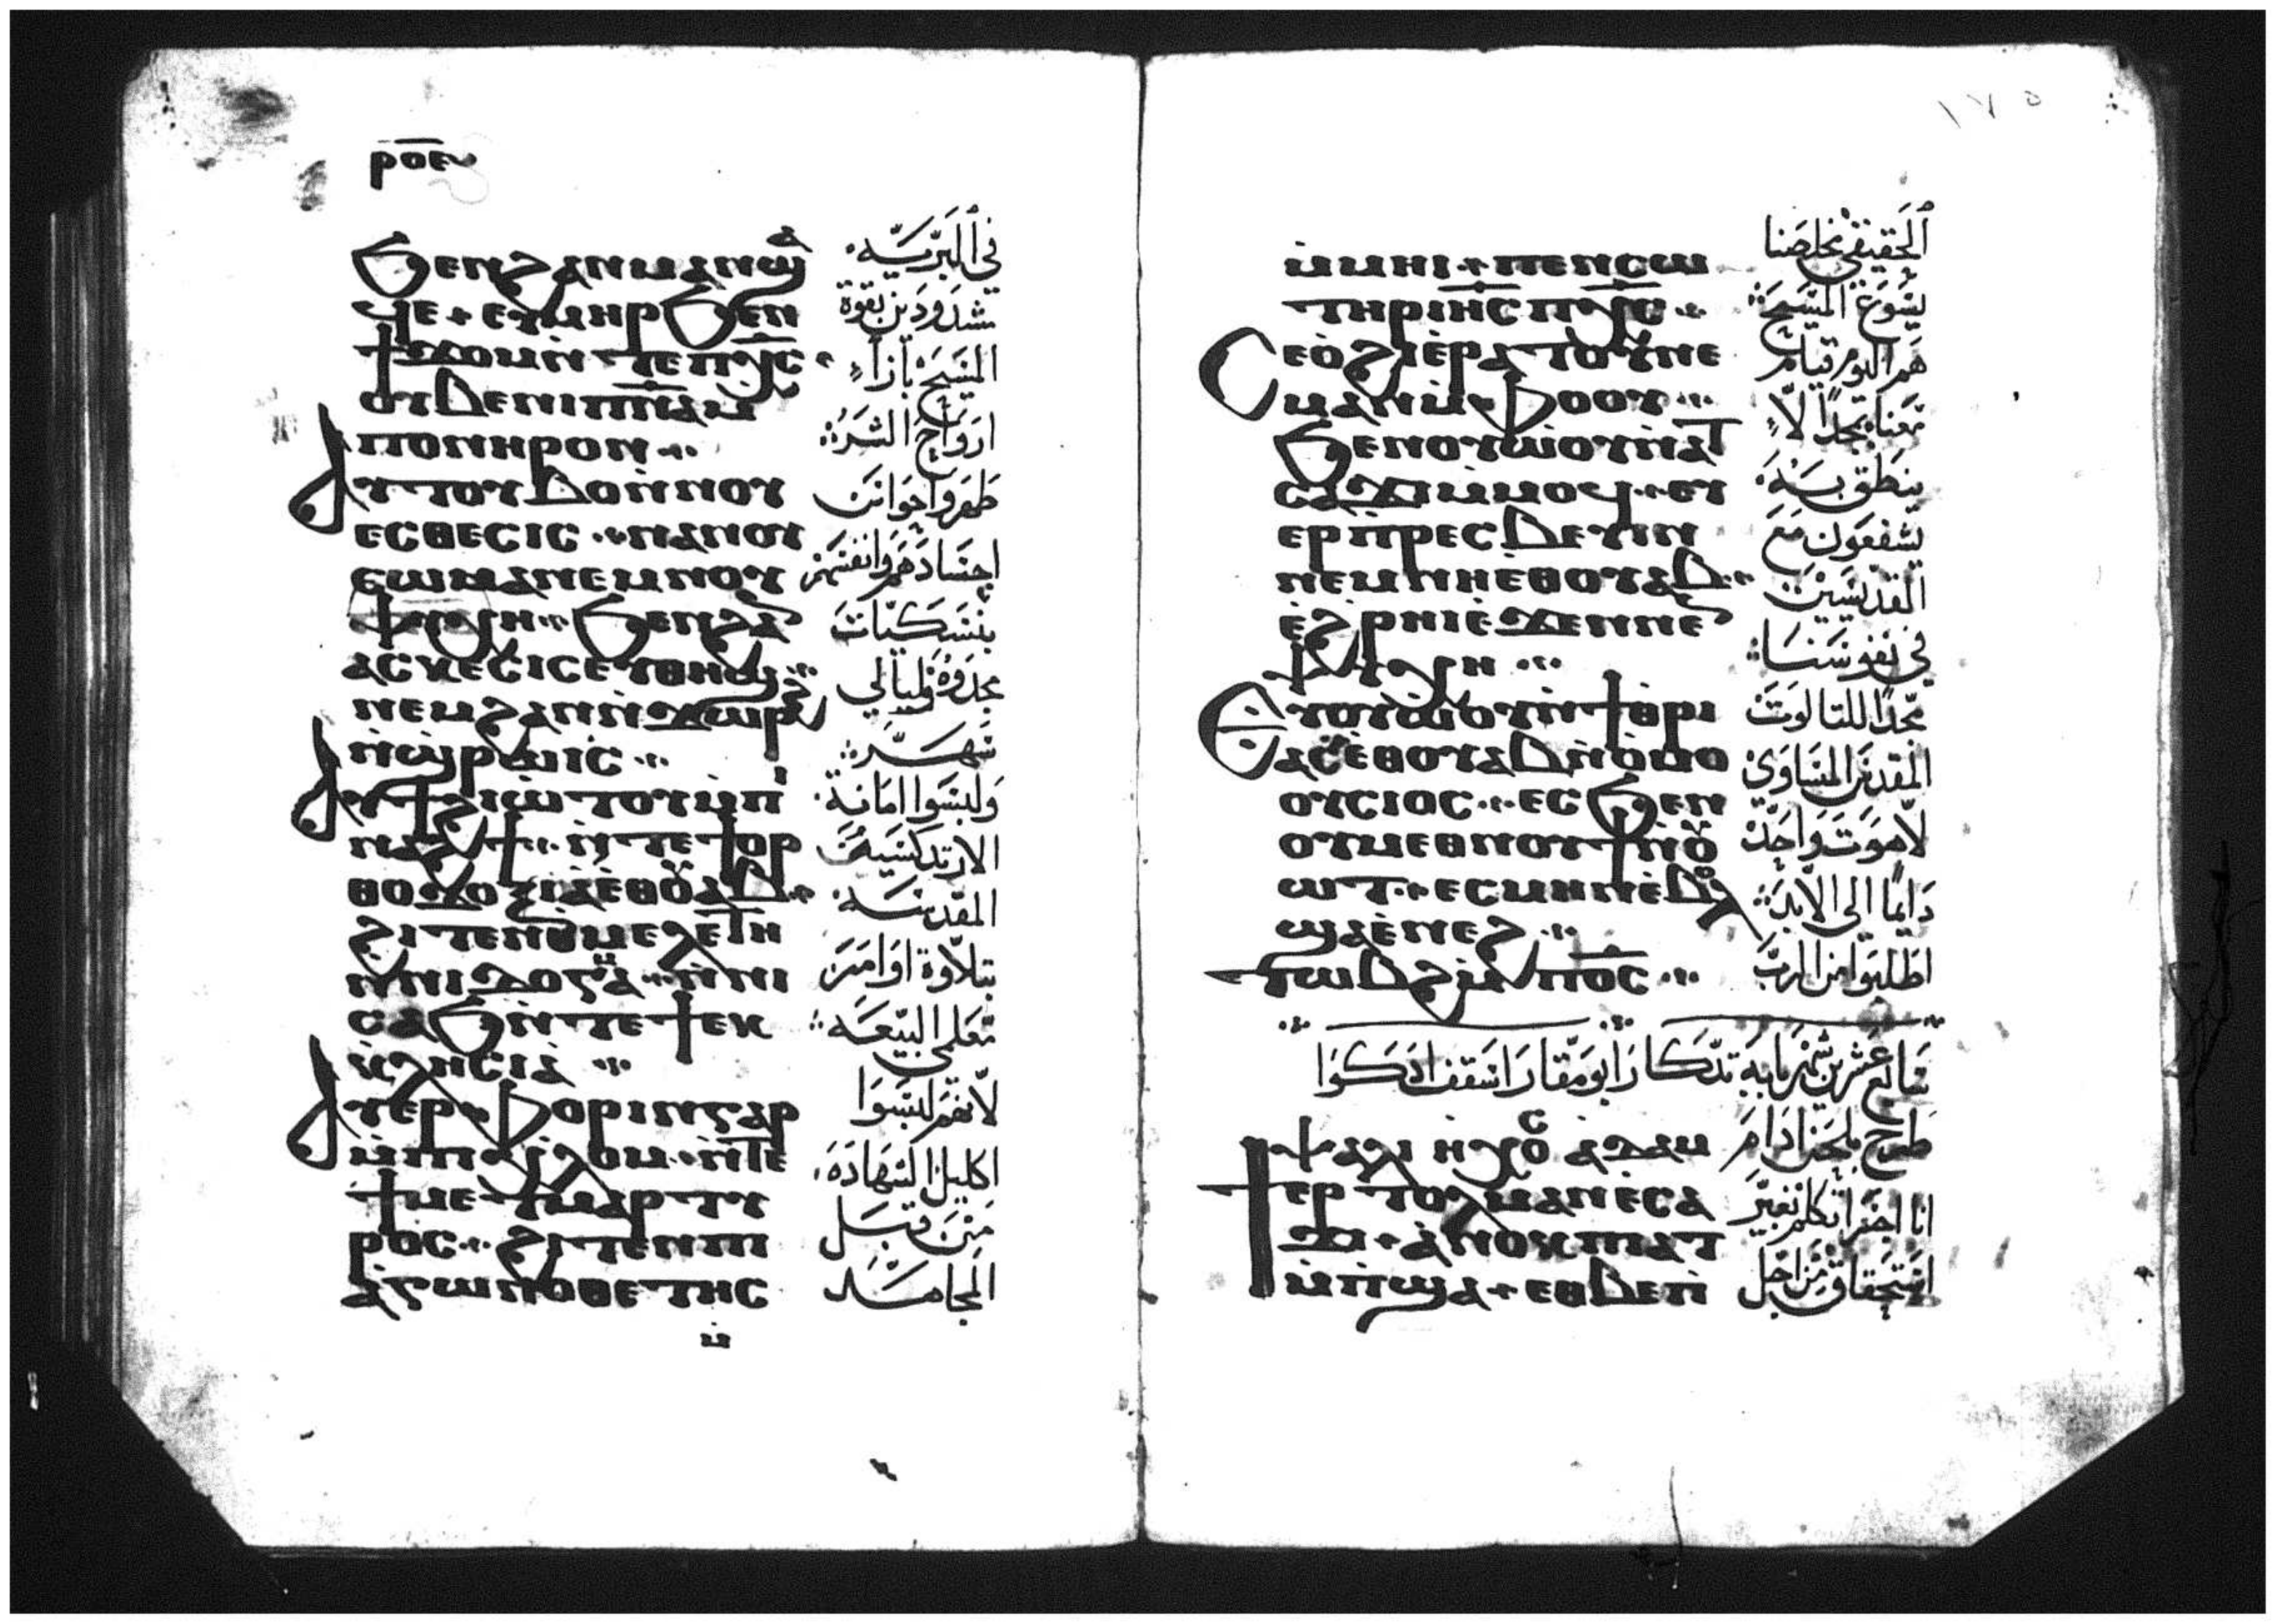 ⲣⲟ̅ⲉ̅
ϧⲉⲛϩⲁⲛⲙⲁⲛϣⲁ
ϥⲉ + ⲉⲩⲙⲏⲣ ϧⲉⲛ
ϯϫⲟⲙ ⲛ̀ⲧⲉ ⲡⲭ̅ⲥ̅
ⲟⲩⲃⲉ ⲛⲓⲡ̅ⲛ̅ⲁ̅ ⲙ̀
ⲡⲟⲛⲏⲣⲟⲛ
ⲁⲩⲧⲟⲩⲃⲟ ⲛ̀ⲛⲟⲩ
ⲉⲥⲑⲉⲥⲓⲥ ⲛⲁⲛⲟⲩ
ⲥⲱⲙⲁ ⲛⲉⲙ ⲛⲟⲩ
ⲯⲩⲭⲏ ϧⲉⲛϩⲁ
ⲁⲥⲕⲉⲥⲓⲥ ⲉⲩⲑⲏϣ
ⲛⲉⲙ ϩⲁⲛⲛ̀ϫⲱⲣϩ
ⲛ̀ϣⲣⲱⲓⲥ
ⲁⲩϯϩⲓⲱⲧⲟⲩ ⲙ̀ⲡⲓ
ⲛⲁϩϯ ⲛ̀ⲧⲉ ϯⲟⲣ
ⲑⲟⲇⲟⲝⲓⲁ ⲉ̀ⲑⲟⲩⲁⲃ
ϩⲓⲧⲉⲛ ⲑⲙⲉⲗⲉⲧⲏ
ⲛ̀ⲛⲓⲇⲟⲅⲙⲁ ⲛ̀ⲛⲓ
ⲥⲁϧ ⲛ̀ⲧⲉ ϯⲉⲕ
ⲕⲗⲏⲥⲓⲁ
ⲁⲩⲉⲣⲫⲟⲣⲓⲛ ⲅⲁⲣ
ⲙ̀ⲡⲓⲭⲗⲟⲙ ⲛ̀ⲧⲉ
ϯⲙⲉⲧⲙⲁⲣⲧⲩ
ⲣⲟⲥ ϩⲓⲧⲉⲛ ⲡⲓ
ⲁⲅⲱⲛⲟⲑⲉⲧⲏⲥ
ⲙ̀
في البريّه
مشدودين بقوة
المسيح بازآءِ
ارواح الشر
طهروا حوانن
اجسادهم وانفسهم
بنسكيات
محدوده وليالي
سهر
ولبسوا امانة
الارتدكسيه
المقدسه
بتلاوة اوامر
معلمي البيعه
لانهم لبسوا
اكليل الشهاده
من قبل
المجاهد
١٧٥
ⲙ̀ⲙⲏⲓ + ⲡⲉⲛⲥⲱ
ⲧⲏⲣ ⲓⲏ̅ⲥ̅ ⲡⲭ̅ⲥ̅
ⲥⲉⲟ̀ϩⲓ ⲉ̀ⲣⲁⲧⲟⲩ ⲛⲉ
ⲙⲁⲛ ⲙ̀ⲫⲟⲟⲩ
ϧⲉⲛ ⲟⲩⲱ̀ⲟⲩ ⲛ̀ⲁⲧ
ⲥⲁϫⲓ ⲙ̀ⲙⲟϥ ⲉⲩ
ⲉⲣⲡ̀ⲣⲉⲥⲃⲉⲩⲓⲛ
ⲛⲉⲙ ⲛⲏⲉⲑⲟⲩⲁⲃ
ⲉ̀ϩⲣⲏⲓ ⲉ̀ϫⲉⲛ ⲛⲉⲛ
ⲯⲩⲭⲏ
ⲉⲩⲟⲩⲱⲟⲩ ⲛ̀ϯⲑⲣⲓ
ⲁⲥ ⲉⲑⲟⲩⲁⲃ ⲛ̀ⲟ̀ⲙⲟ
ⲟⲩⲥⲓⲟⲥ ⲉⲥϧⲉⲛ
ⲟⲩⲙⲉⲑⲛⲟⲩϯ ⲛ̀ⲟⲩ
ⲱⲧ ⲉⲥⲙⲏⲛ ⲉ̀ⲃⲟⲗ
ϣⲁ ⲉ̀ⲛⲉϩ
ⲧⲱⲃϩ ⲙ̀ⲡⲟ̅ⲥ̅
الحقيقي مخلصنا
يسوع المسيح
هم اليوم قيام
معنا بمجدًا لاءِ
ينطق به
يشفعون مع
القديسين
في نفوسنا
مجدًا للتالوت
المقدس المساوي
لاهوت واحد
دايمًا الي الابد
اطلبوا من الرب
سابع عشرين شهر بابه تدكار ابو مقار اسقف ادكوا
ⲯⲁⲗⲓ ⲏⲭⲟⲥ ⲁⲇⲁⲙ
ϯⲉⲣⲧⲟⲗⲙⲁⲛ ⲉ̀ⲥⲁ
ϫⲓ + ⲁ̀ⲛⲟⲕ ⲡⲓⲁⲧ
ⲙ̀ⲡ̀ϣⲁ + ⲉⲑⲃⲉ ⲡ̀
طرح بلحن ادام
انا اجترا اتكلم بغير
استحقاق من اجل